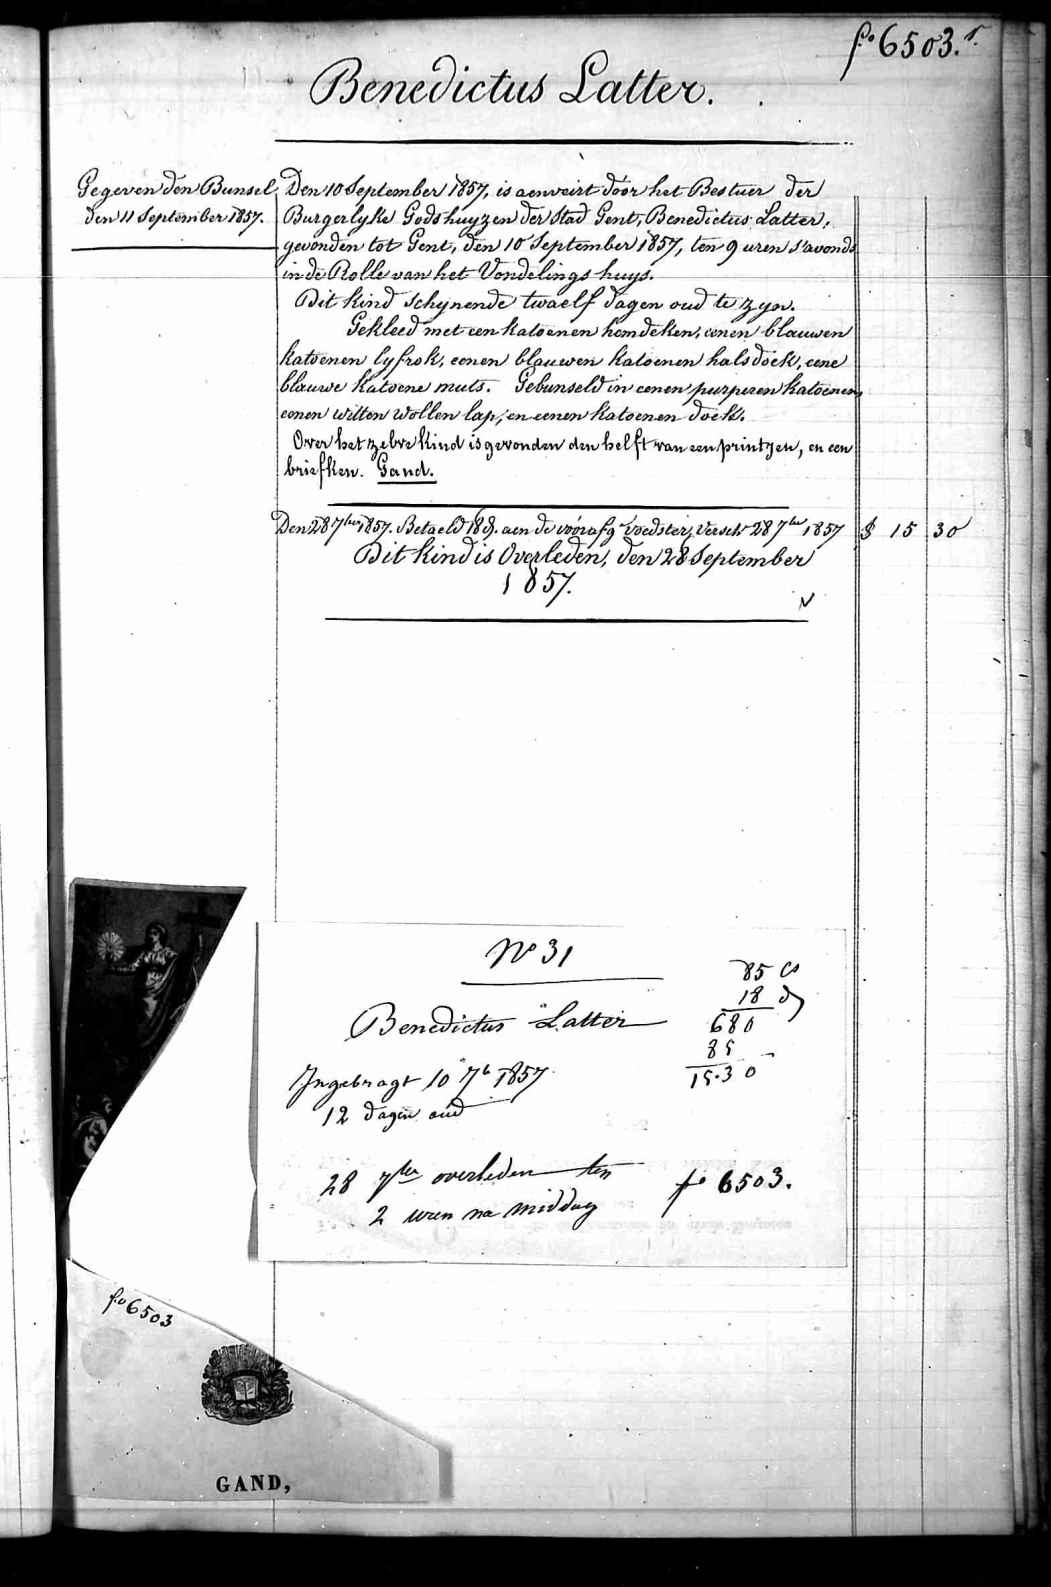 fo 6503. r.
Benedictus Latter.
Gegeven den Bunsel
den 11 September 1857.
Den 10 September 1857, is aenveirt door het Bestuer der
Burgerlyke Godshuyzen der Stad Gent, Benedictus Latter,
gevonden tot Gent, den 10 September 1857, ten 9 uren s'avonds
in de Rolle van het Vondelings huys.
Dit kind schynende twaelf dagen oud te zyn.
Gekleed met een katoenen hemdeken, eenen blauwen
katoenen lyfrok, eenen blauwen katoenen halsdoek, eene
blauwe katoene muts. Gebunseld in eenen purperen katoenen,
eenen witten wollen lap, en eenen katoenen doek.
Over het zelve kind is gevonden den helft van een printjen, en een
briefken. Gand.
Den 28 7ber 1857. Betaeld 18 d. aen de voorafg voedster, Versch 28 7ber 1857 15 30
Dit kind is Overleden, den 28 September
1857.
No 31
85 cs
18 d
680
85
15.30
Benedictus Latter
Ingebragt 10 7b 1857
12 dagen oud
28 7ber overleden ten
2 uren na middag
fo 6503.
fo 6503
GAND,